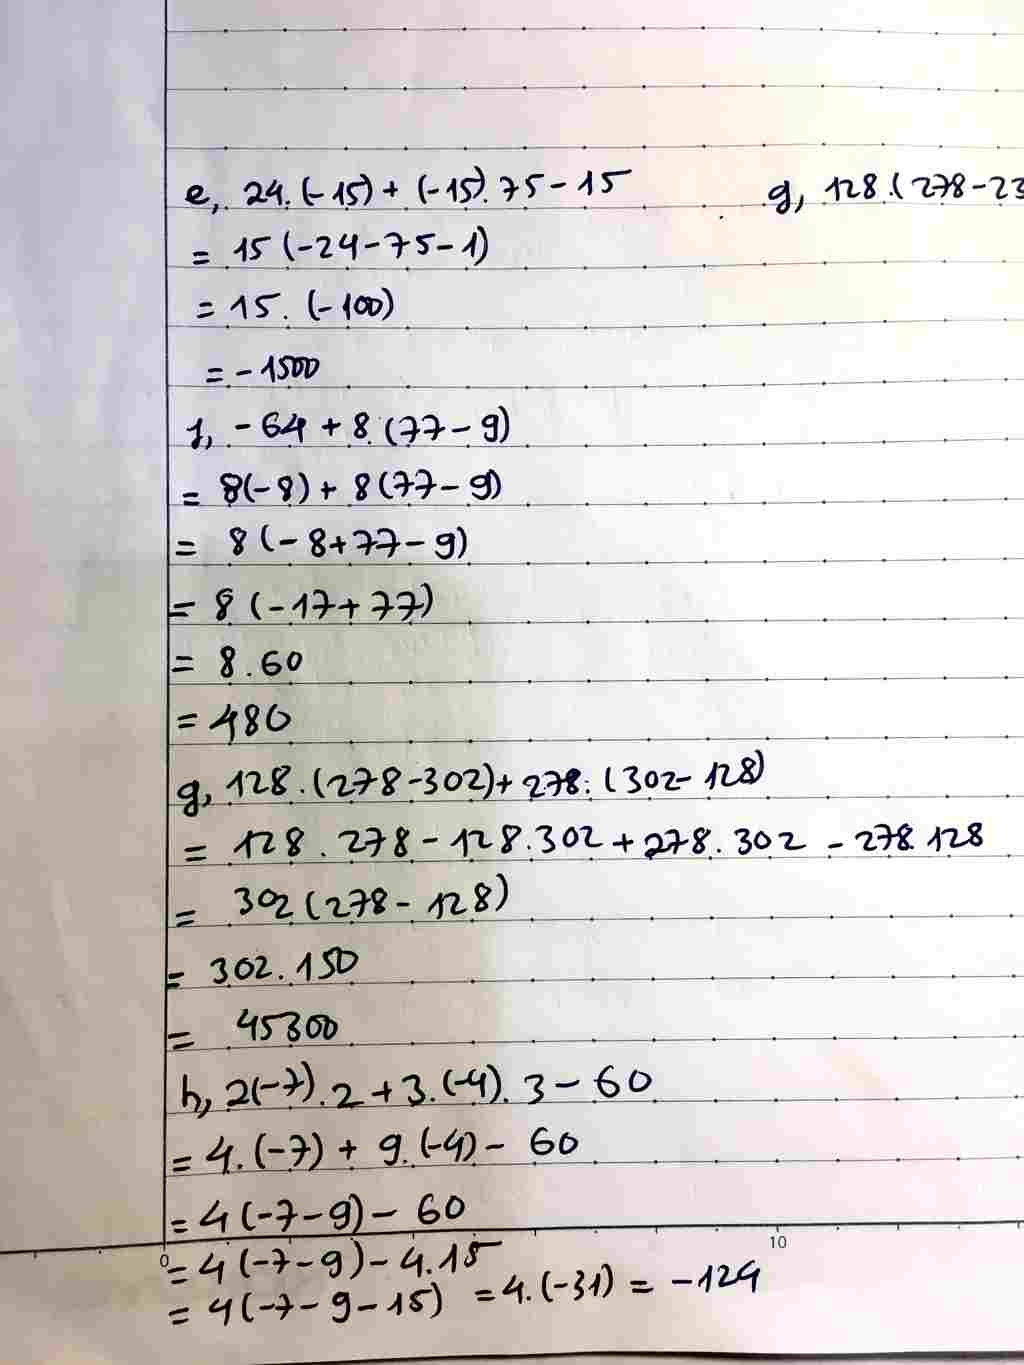 e, 24.(-15) + (-15).75 - 15
g, 128.(278-23
= 15(-24-75-1)
= 15.(-100)
= -1500
f, -64 + 8(77-9)
= 8(-8) + 8(77-9)
= 8(-8+77-9)
= 8(-17+77)
= 8.60
= 480
g, 128.(278-302) + 278.(302-128)
= 128.278 - 128.302 + 278.302 - 278.128
= 302(278-128)
= 302.150
= 45300
h, 2(-7).2 + 3.(-4).3 - 60
= 4.(-7) + 9.(-4) - 60
= 4(-7-9) - 60
= 4(-7-9) - 4.15
= 4(-7-9-15) = 4.(-31) = -124
0 10